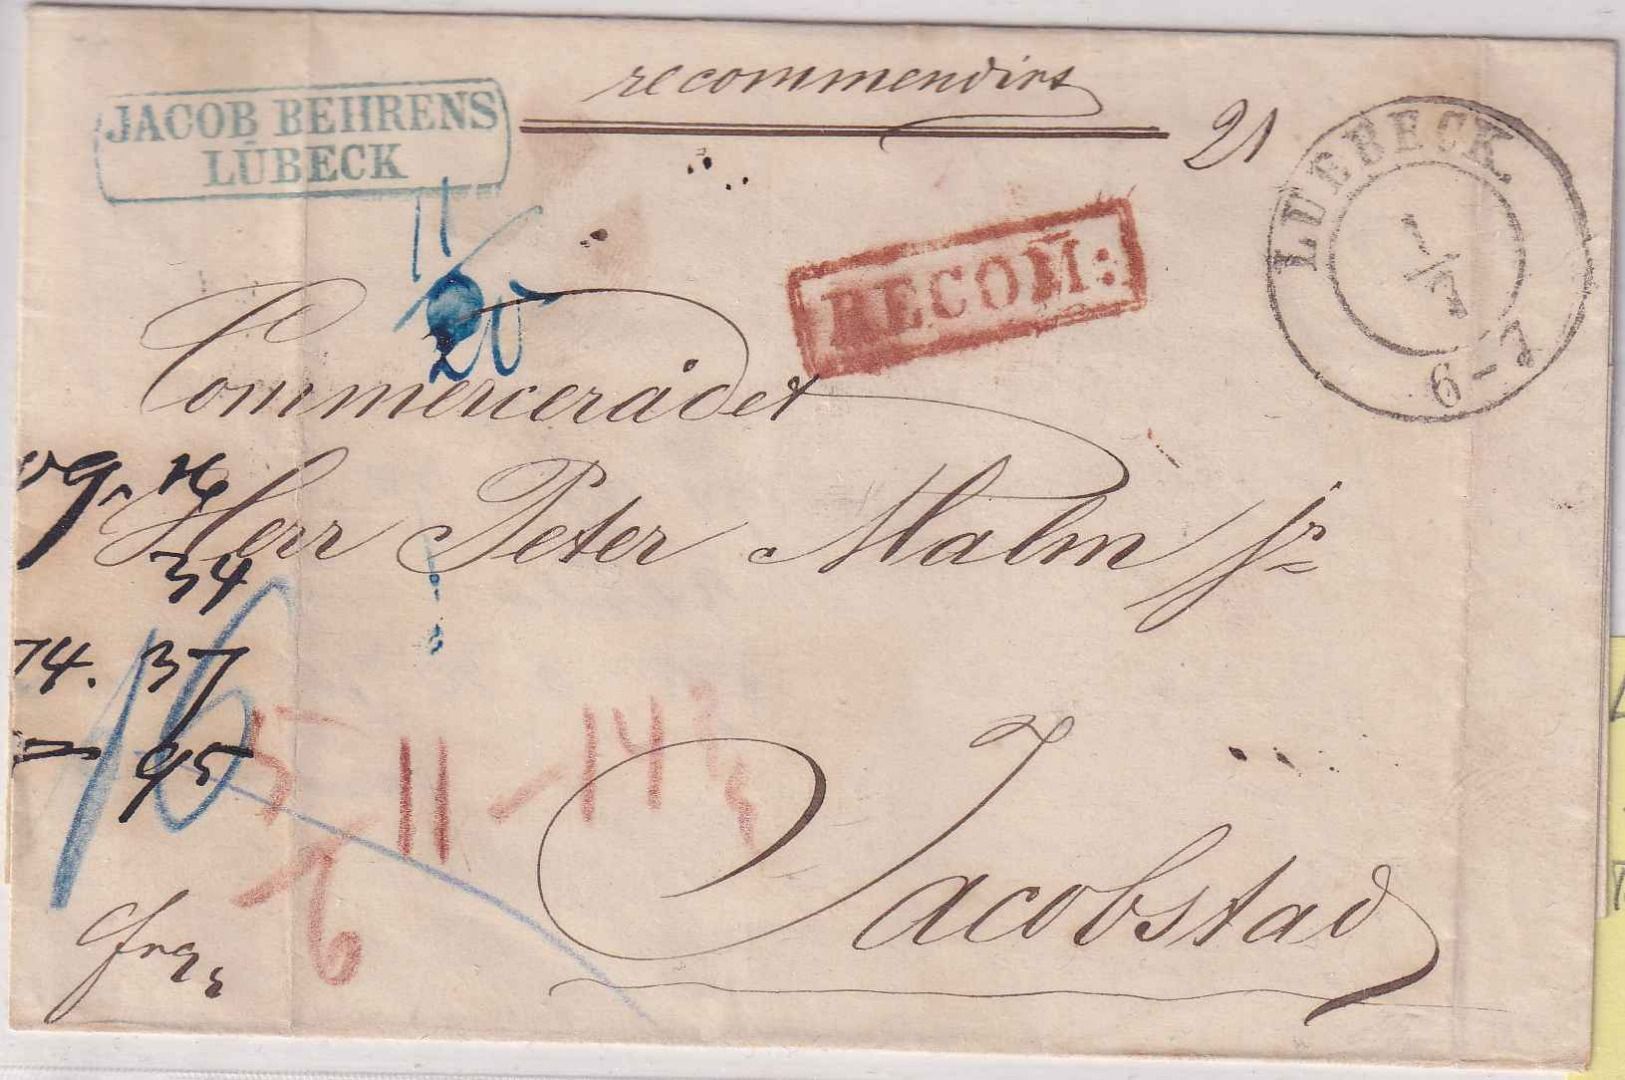 recommendirt
JACOB BEHRENS
LÜBECK
21
LUEBECK
1/7
6-7
RECOM:
11/20
Commercerådet
Herr Peter Malm jr
34
74. 37
95
16
5
11 - 14
6
Jacobstad